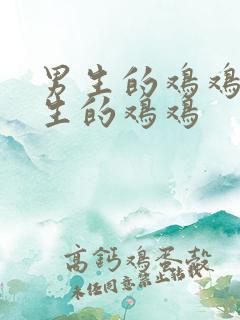 男生的鸡鸡
生的鸡鸡
高钙鸡蛋殼
未任同意禁止转载